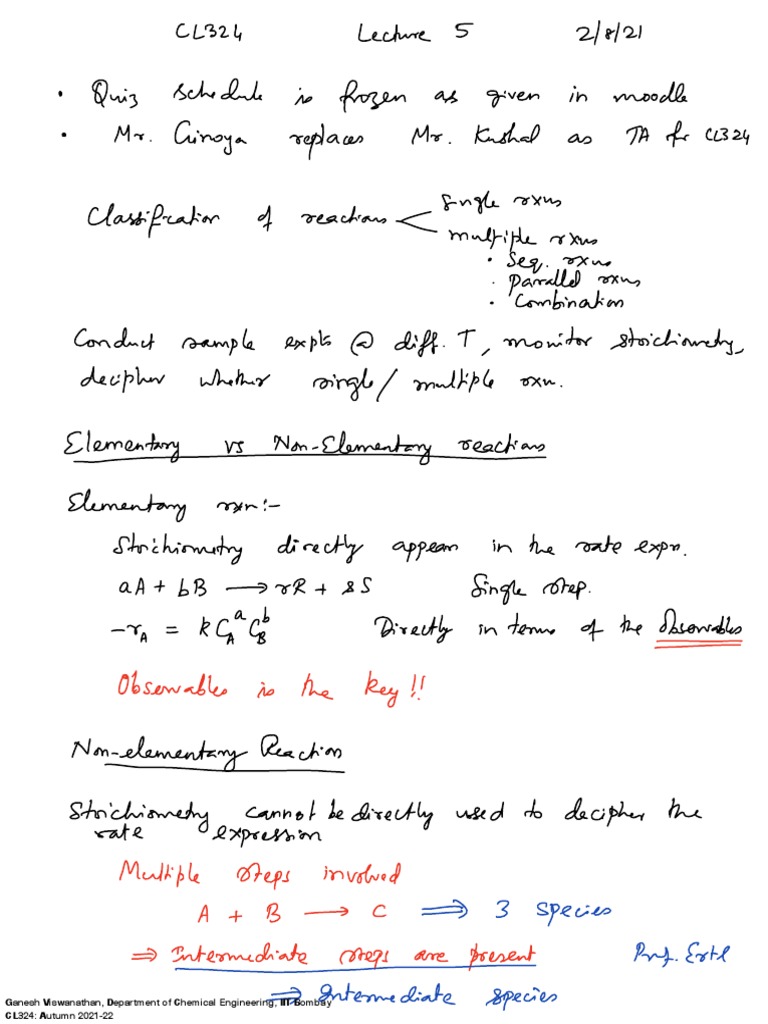 CL324 Lecture 5 2/8/21
• Quiz schedule is frozen as given in moodle
• Mr. Ginoya replaces Mr. Kushal as TA for CL324
Classification of reactions
Single rxns
multiple rxns
• Seq. rxns
• parallel rxns
• Combination
Conduct sample expts @ diff. T, monitor stoichiometry,
decipher whether single/multiple rxn.
Elementary vs Non-Elementary reactions
Elementary rxn:-
Stoichiometry directly appear in the rate expn.
aA + bB ⟶ rR + sS Single step.
-r_A = k C_A^a C_B^b Directly in terms of the observables
Observables is the key!!
Non-elementary Reaction
Stoichiometry cannot be directly used to decipher the
rate expression
Multiple steps involved
A + B ⟶ C ⟹ 3 species
⟹ Intermediate steps are present Prof. Ertl
⟹ Intermediate species
Ganesh Viswanathan, Department of Chemical Engineering, IIT Bombay
CL324: Autumn 2021-22